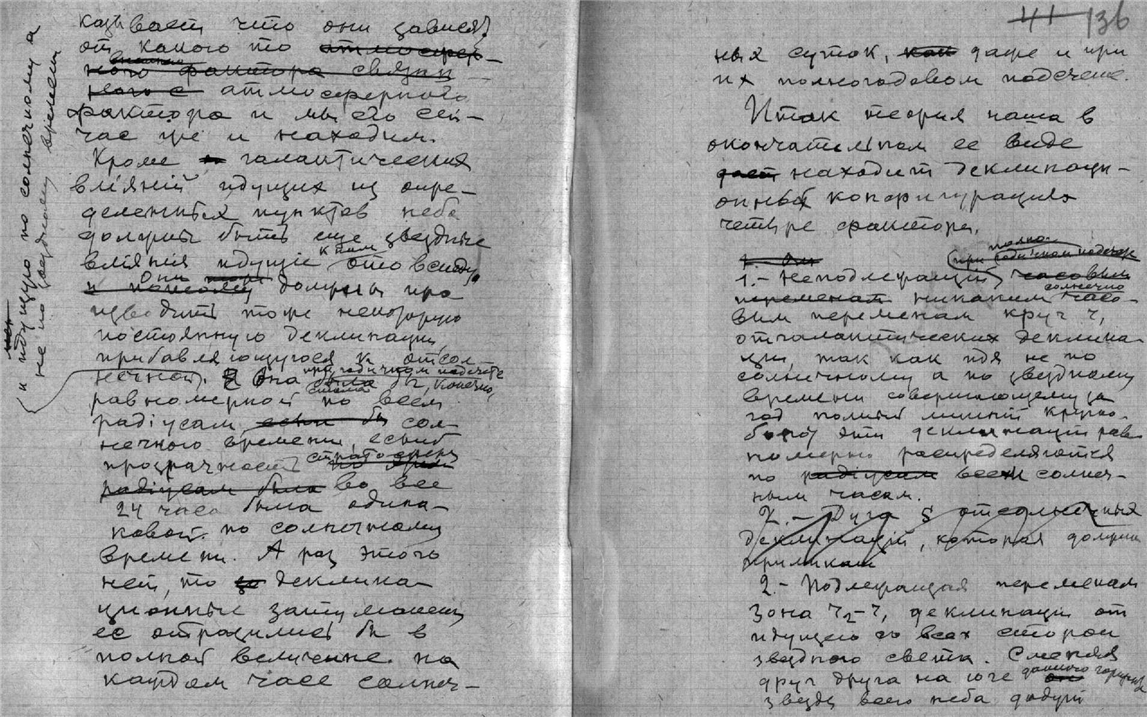 казывает что они зависят
от какого то атмосфер-
ного фактора связан
ного с атмосферного
фактора и мы его сей-
час же и находим.
Кроме галактических
влiянiй идущих из опре-
деленных пунктов неба
должны быть еще звездные
влiянiя идущiе к нам ото всюду
Они должны про
изводить тоже некоторую
постоянную деклинацiю,
прибавляющуюся к отсол-
нечной. Она была бы, конечно,
при годичном подсчете
равномерной по всем
радiусам сол-
нечного времени, если б
прозрачность стратосферы
радiусам была во все
24 часа была одина-
ковой по солнечному
времени. А раз этого
нет, то деклина-
ционные
ее отразились бы в
полной величине на
каждом часе солнеч-
и идущую по солнечному а
не по звездному времени
41 136
ных суток, даже и при
их полногодовом подсчете.
Итак теория наша в
окончательном ее виде
дает находит деклинаци-
онных конфигурациях
четыре фактора.
1.- Неподлежащий
никаким солнечно часо-
вым переменам круг ч,
отгалактических деклина-
ций так как идя не по
солнечному а по звездному
времени совершающему за
год полный лишний круго-
борот эти деклинации рав
номерно распределяются
по радiусам всем солнеч-
ным часам.
2.- Дуга S отсолнечных
деклинаций, которая должна
2.- Подлежащая переменам
Зона ч2-ч, деклинации от
идущего со всех сторон
звездного света. Сменяя
друг друга на юге данного горизонта
звезды всего неба дадут